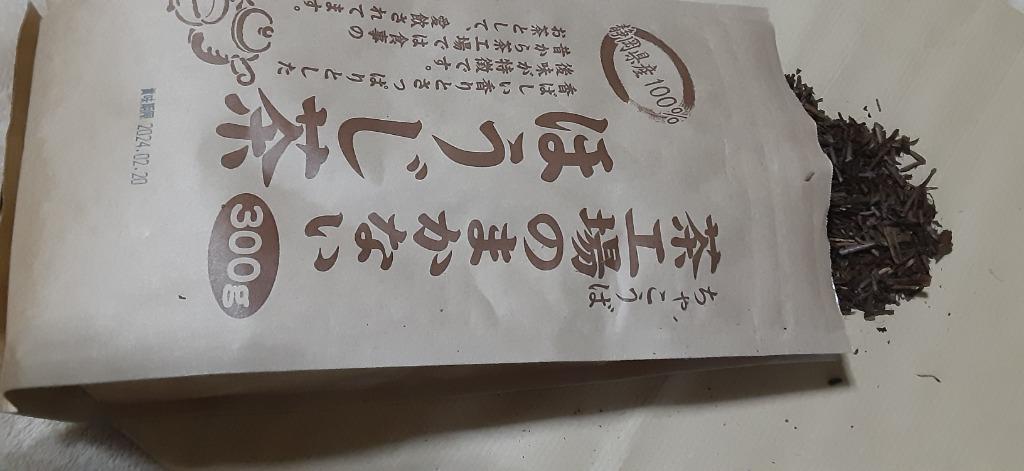 静岡県産100%
ちゃこうば
茶工場のまかない
ほうじ茶
香ばしい香りとさっぱりとした
後味が特徴です。
昔から茶工場では食事の
お茶として、愛飲されてます。
300g
賞味期限 2024.02.20